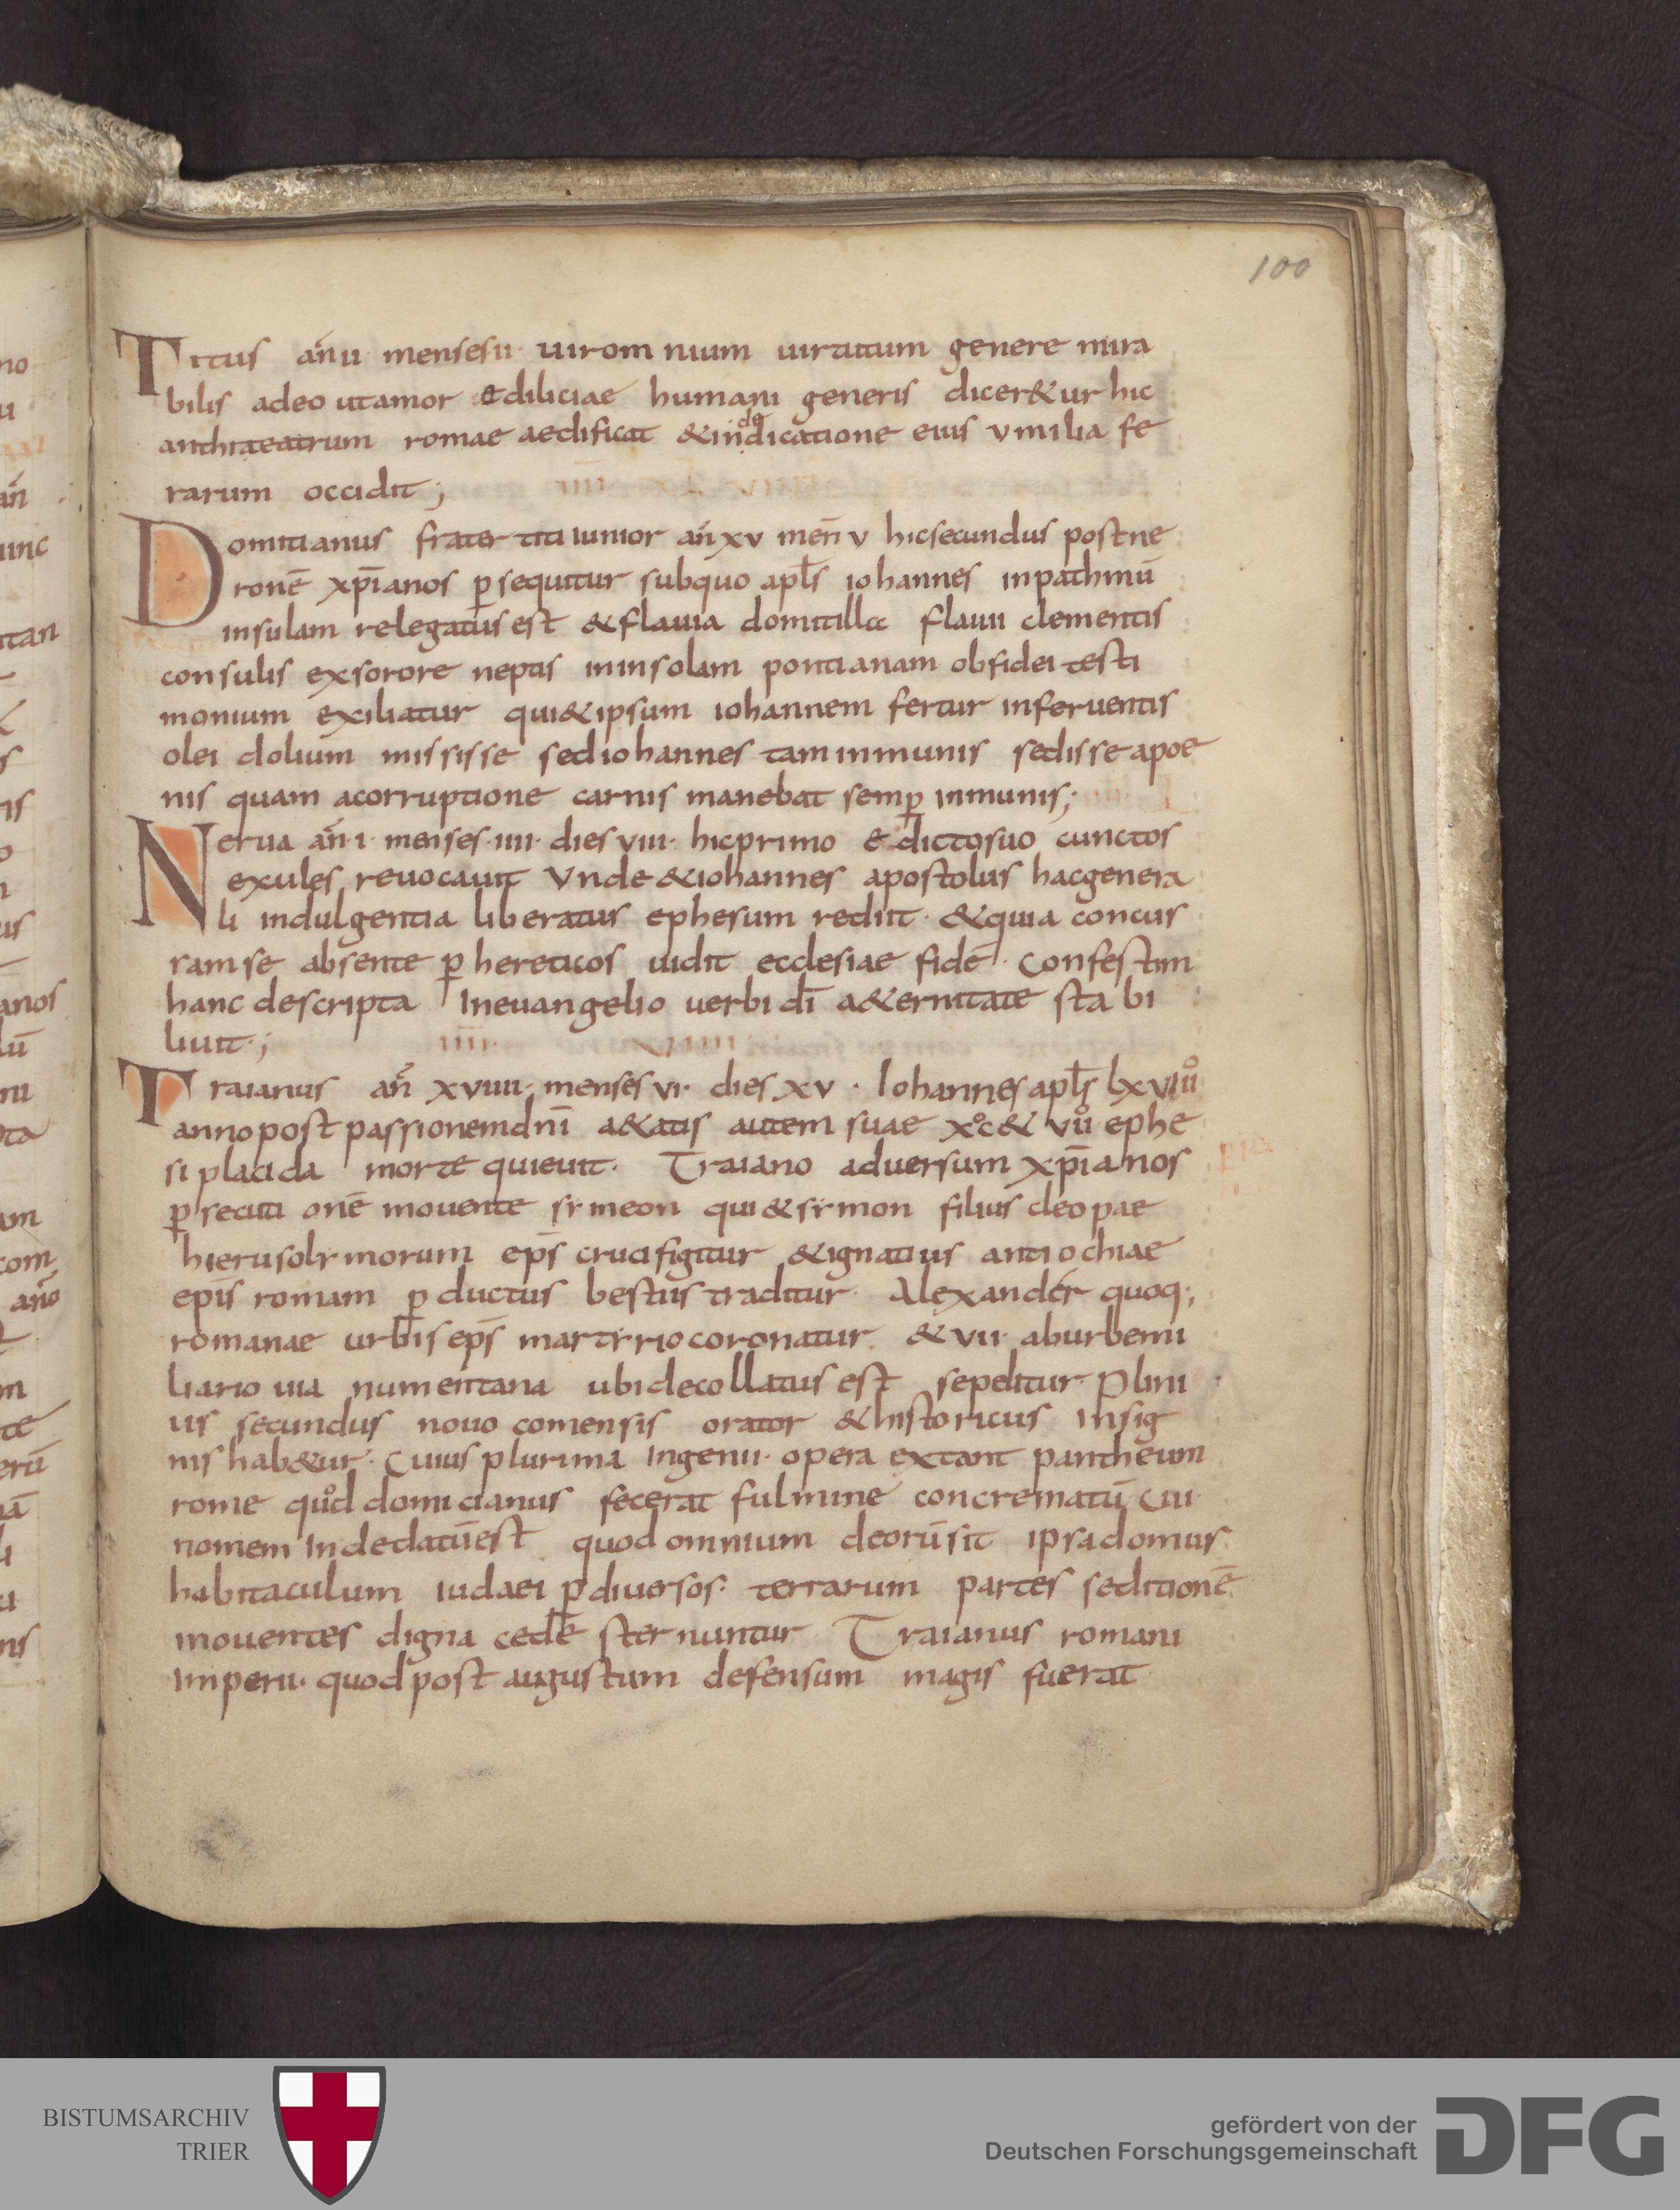 100
Titus an̄ ii menses ii· uir omnium uirtutum genere mira
bilis adeo ut amor et diliciae humani generis diceretur hic
anthiteatrum romae aedificat & in dedicatione eius v milia fe
rarum occidit;
Domitianus frater titi iunior an̄ xv men̄ v hic secundus post ne
ronē xp̄ianos ꝑsequitur sub quo apl̄s iohannes in pathmū
insulam relegatus est & flauia domitilla flauii clementis
consulis ex sorore neptis in insolam pontianam ob fidei testi
monium exiliatur qui & ipsum iohannem fertur in feruentis
olei dolium mississe sed iohannes tam inmunis sedisse a poe
nis quam a corruptione carnis manebat semꝑ inmunis;
Nerua an̄ i· menses iiii· dies viii· hic primo edicto suo cunctos
exules reuocauit Vnde & iohannes apostolus hac genera
li indulgentia liberatus ephesum rediit· & quia concus
ram se absente ꝑ hereticos uidit ecclesiae fidē· Confestim
hanc descripta In euangelio uerbi dī aeternitate stabi
liuit;
Traianus an̄ xviiii· menses vi· dies xv· Iohannes apl̄s lxviiiº
anno post passionem dn̄i aetatis autem suae xºc & viiiº ephe
si placida morte quieuit· Traiano aduersum xp̄ianos
ꝑsecuti onē mouente symeon qui & symon filius cleopae
hierusolymorum ep̄s crucifigitur & ignatius antiochiae
epīs romam ꝑductus bestiis traditur· Alexander quoq;
romanae urbis ep̄s martyrio coronatur· & vii· ab urbe mi
liario uia numentana ubi decollatus est sepelitur· Plini
us secundus nouo comensis orator & historicus insig
nis habetur· Cuius plurima ingenii· opera extant pantheum
rome quod domicianus fecerat fulmine concrematū Cui
nomem Inde datū est quod omnium deorū sit ipsa domus
habitaculum iudaei ꝑ diuersos· terrarum partes seditionē
mouentes digna cede sternuntur Traianus romani
Imperii· quod post augustum defensum magis fuerat
BISTUMSARCHIV
TRIER
gefördert von der
Deutschen Forschungsgemeinschaft
DFG